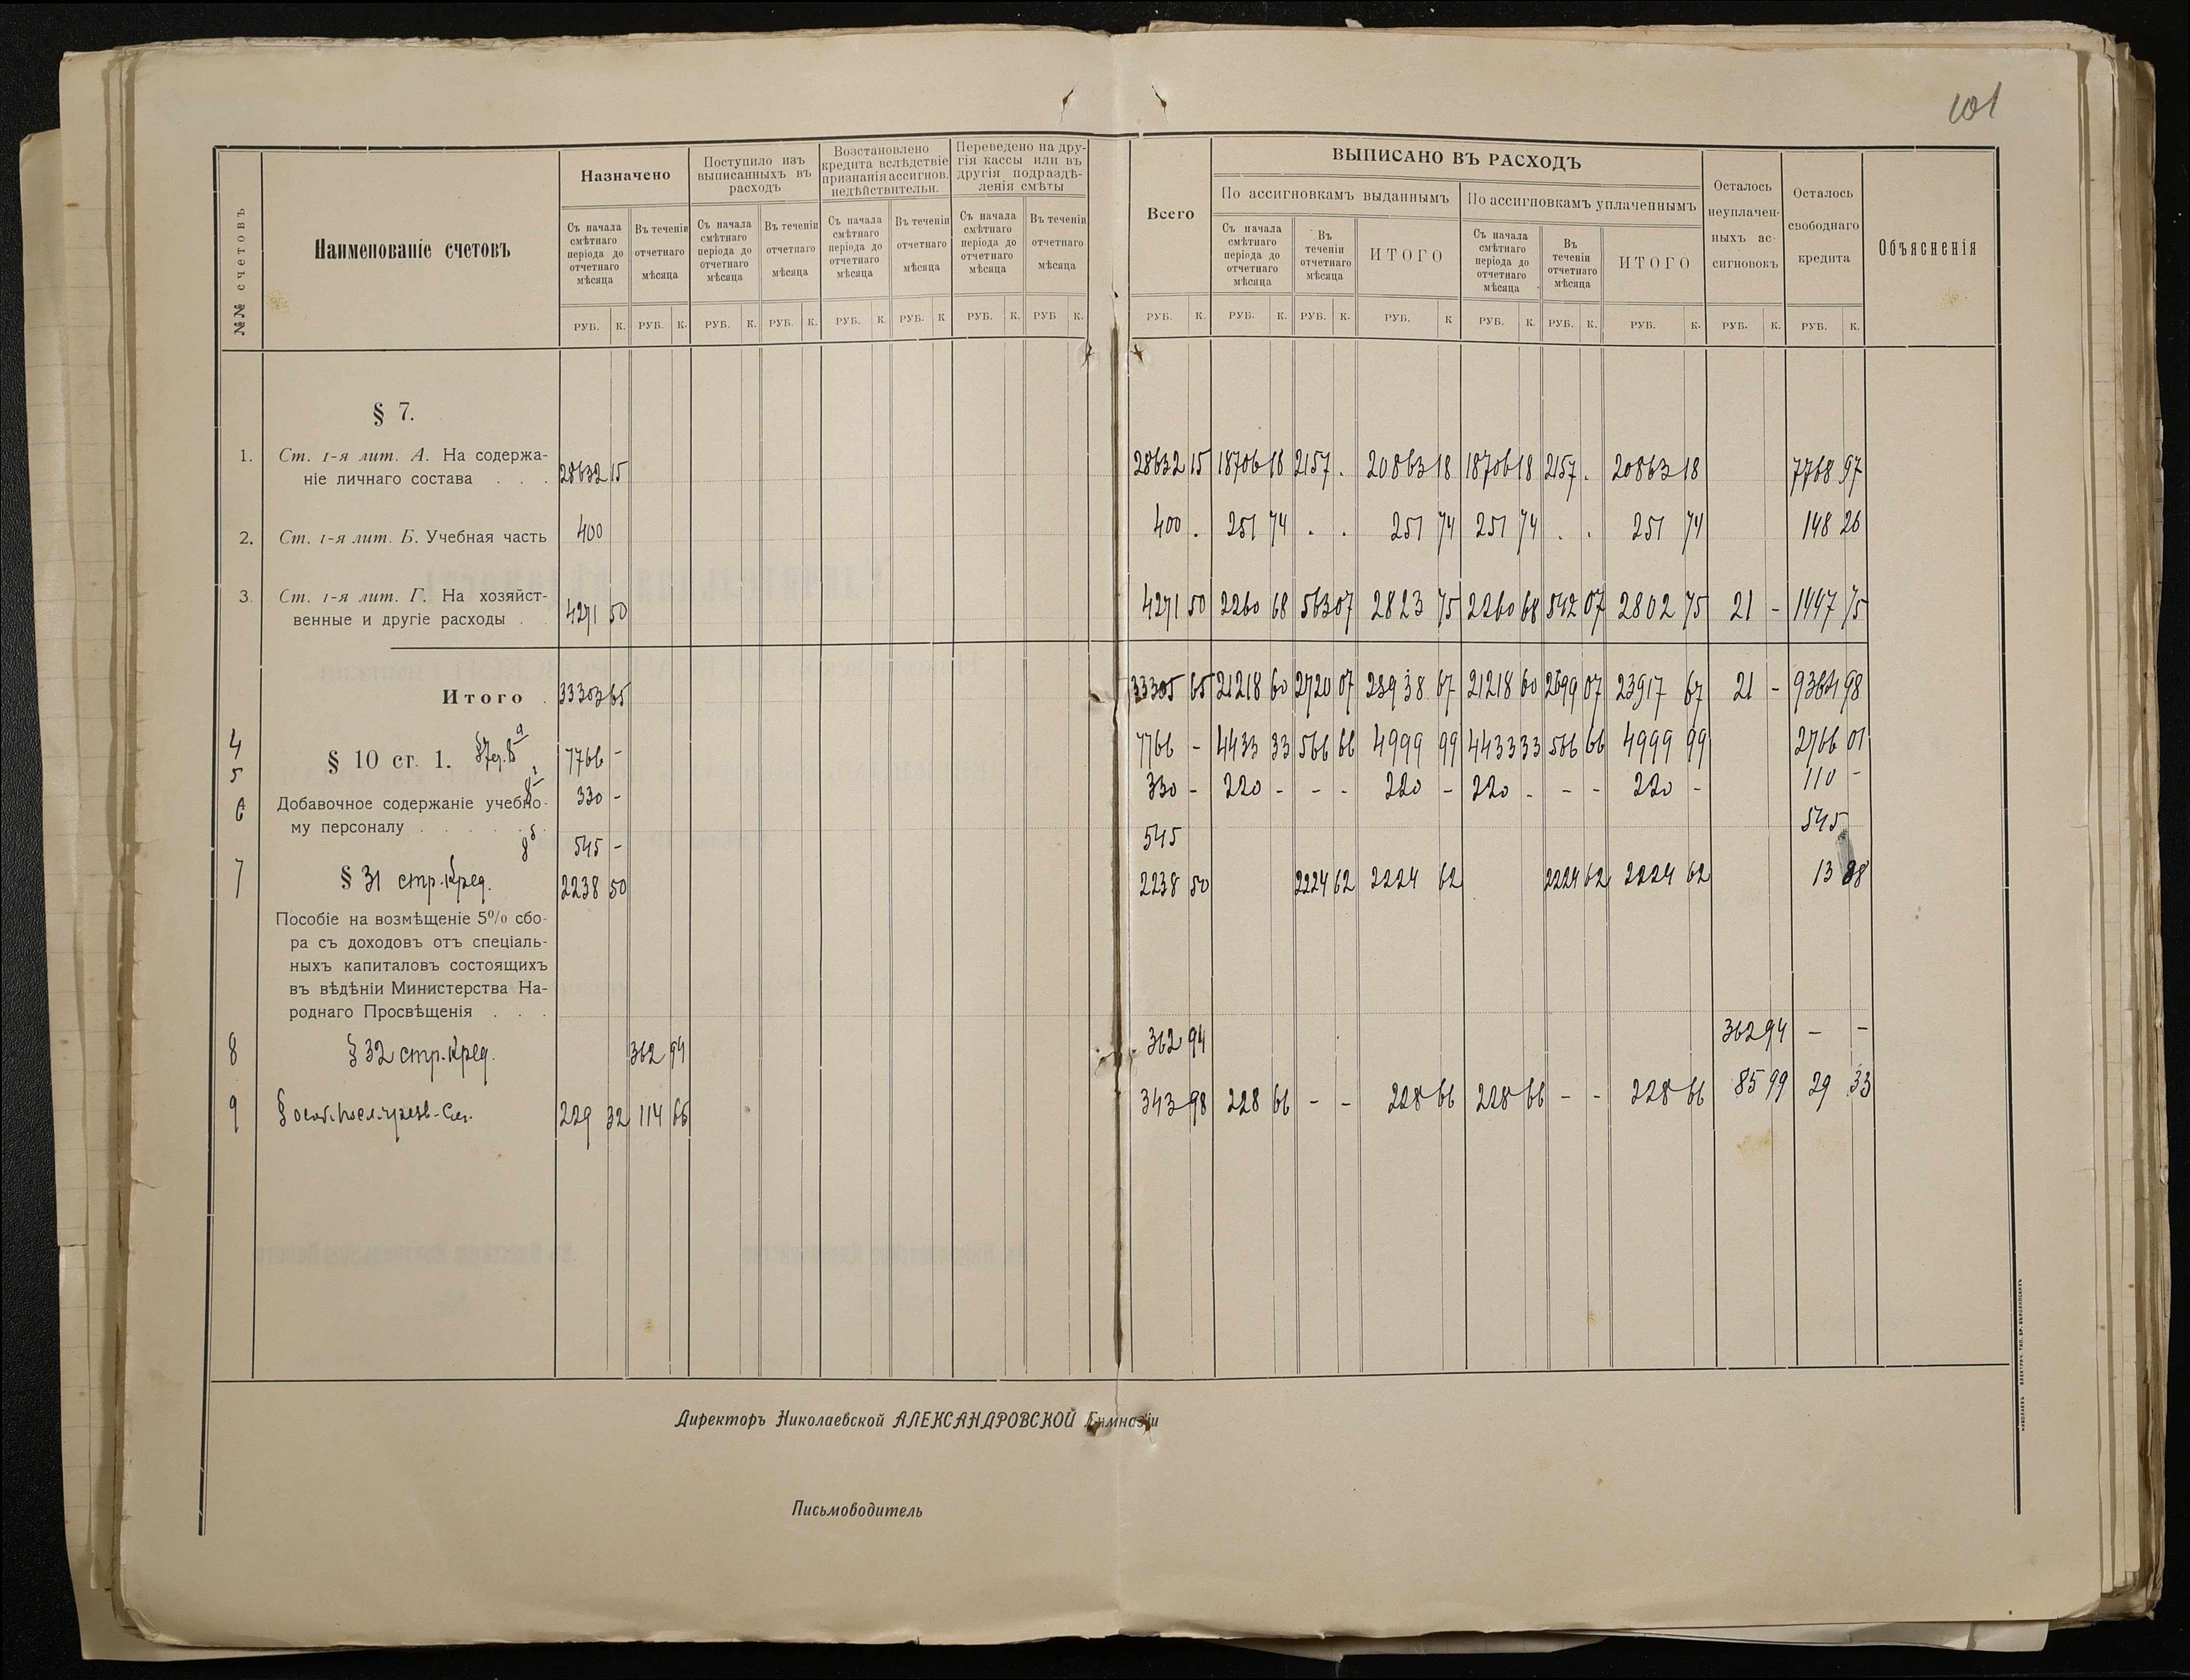 101
№№ счетовъ
Наименованіе счетовъ
Назначено
Поступило изъ
выписанныхъ въ
расходъ
Возстановлено
кредита вслѣдствіе
признанія ассигнов.
недѣйствительн.
Переведено на дру-
гія кассы или въ
другія подраздѣ-
ленія смѣты
Всего
ВЫПИСАНО ВЪ РАСХОДЪ
По ассигновкамъ выданнымъ
По ассигновкамъ уплаченнымъ
Осталось
неуплачен-
ныхъ ас-
сигновокъ
Осталось
свободнаго
кредита
Объясненія
Съ начала
смѣтнаго
періода до
отчетнаго
мѣсяца
Въ теченіи
отчетнаго
мѣсяца
Съ начала
смѣтнаго
періода до
отчетнаго
мѣсяца
Въ теченіи
отчетнаго
мѣсяца
Съ начала
смѣтнаго
періода до
отчетнаго
мѣсяца
Въ теченіи
отчетнаго
мѣсяца
Съ начала
смѣтнаго
періода до
отчетнаго
мѣсяца
Въ теченіи
отчетнаго
мѣсяца
Съ начала
смѣтнаго
періода до
отчетнаго
мѣсяца
Въ
теченіи
отчетнаго
мѣсяца
ИТОГО
Съ начала
смѣтнаго
періода до
отчетнаго
мѣсяца
Въ
теченіи
отчетнаго
мѣсяца
ИТОГО
РУБ. К. РУБ. К. РУБ. К. РУБ. К. РУБ. К. РУБ. К РУБ. К. РУБ К. РУБ. К. РУБ. К. РУБ. К. РУБ. К РУБ. К. РУБ. К. РУБ. К. РУБ. К. РУБ. К.
§ 7.
1. Ст. 1-я лит. А. На содержа-
ніе личнаго состава . . . 28632 15 28632 15 18706 18 2157 . 20863 18 18706 18 2157 . 20863 18 7768 97
2. Ст. 1-я лит. Б. Учебная часть 400 400 . 251 74 . . 251 74 251 74 . . 251 74 148 26
3. Ст. 1-я лит. Г. На хозяйст-
венные и другіе расходы . . 4271 50 4271 50 2260 68 563 07 2823 75 2260 68 542 07 2802 75 21 - 1447 75
Итого . 33303 65 33305 65 21218 60 2720 07 23938 67 21218 60 2699 07 23917 67 21 - 9364 98
4 § 10 ст. 1. 7766 - 7766 - 4433 33 566 66 4999 99 4433 33 566 66 4999 99 2766 01
5 330 - 330 - 220 - - - 220 - 220 - - - 220 - 110 -
6 Добавочное содержаніе учебно-
му персоналу . . . . . . . 545 - 545 545
7 § 31 стр. Кред. 2238 50 2238 50 2224 62 2224 62 2224 62 2224 62 13 88
Пособіе на возмѣщеніе 5% сбо-
ра съ доходовъ отъ спеціаль-
ныхъ капиталовъ состоящихъ
въ вѣдѣніи Министерства На-
роднаго Просвѣщенія . . .
8 § 32 стр. Кред. 362 94 362 94 362 94 - -
9 § 229 32 114 66 343 98 228 66 - - 228 66 228 66 - - 228 66 85 99 29 33
Директоръ Николаевской АЛЕКСАНДРОВСКОЙ Гимназіи
Письмоводитель